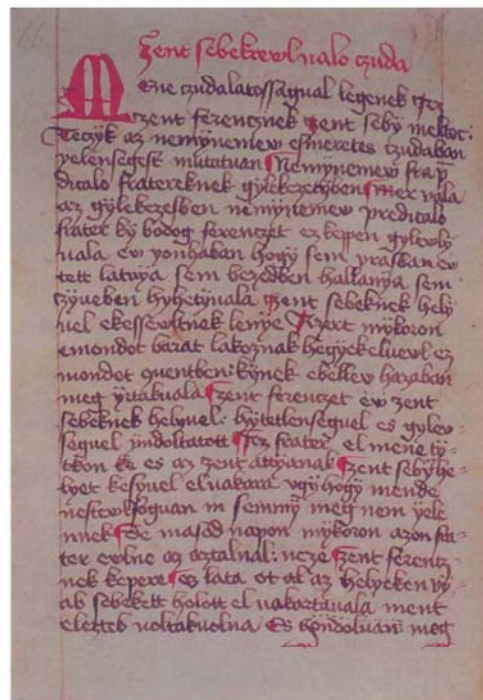 Zent sebekrewl ualo czuda
Mene czudalatossagual legenek
zent ferencznek zent sebÿ
Teczÿk az nemÿnemew esmeretes czudaban
yelensegest mutatuan Nemÿnemew
dicalo fratereknek gÿlekezetÿben Mert vala
az gÿlekezesben nemÿnemew predicalo
frater kÿ bodog ferenczet ez keppen gÿlewlÿ
uala ew yonhaban hogÿ sem ÿrasban ew
tett lataÿa sem bezedben hallanÿa sem
zÿueben hÿhetÿuala zent sebeknek helÿ
uel ekessewltnek lenÿe Azert mÿkoron
emondot barat lakoznak hegÿek eluewl ez
mondot conuentben: kÿnek ebellew hazaban
meg ÿrtakuala zent ferenczet ew zent
sebeknek helÿuel: hÿtetlenseguel es gÿlew-
seguel ÿndoltatott Ez frater el mene tÿ-
tkon ke es az zent attÿanak zent sebÿ he-
lyet kesÿuel el uakara vgÿ hogÿ mende
nestewlfoguan in semmÿ meg nem ÿele
nnek De masod napon mÿkoron azon fra-
ter ewlne az aztalnal: neze zent ferencz
nek kepere es lata ot al az helÿeken vÿ-
ab sebekett holott el uakartauala ment
elezteb uoltakuolna Es gondoluan meg